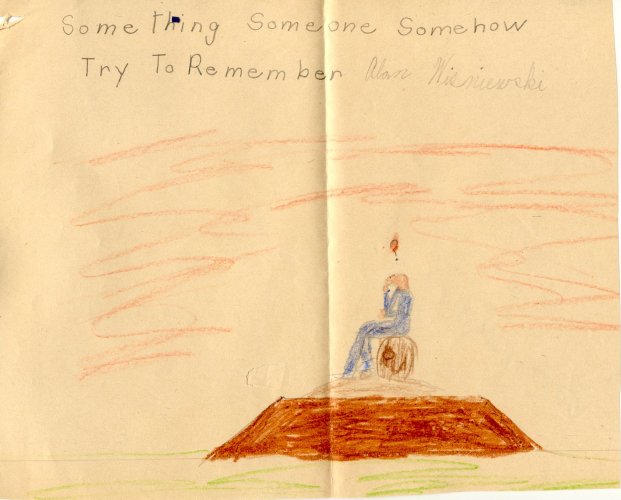 Something Someone Somehow
Try To Remember Alan Wisniewski